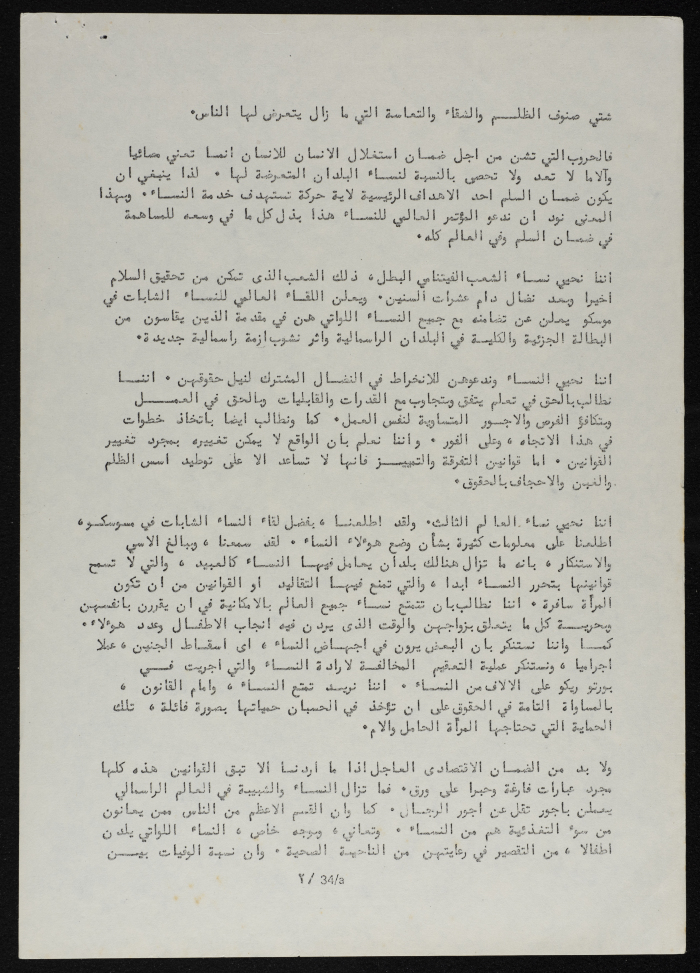 شتي صنوف الظلـــم والشقاء والتعاسة التي ما زال يتعرض لها الناس.
فالحروب التي تشن من اجل ضمـان استغلال الانسان للانسان انمـا تعني مصائبا
وآلاما لا تعد ولا تحصى بالنسبة لنسـاء البلدان المتعرضة لها . لذا ينبغي ان
يكون ضمـان السلم احد الاهداف الرئيسية لاية حركة تستهدف خدمة النسـاء. وبهذا
المعنى نود ان ندعو المؤتمر العالمي للنسـاء هذا بذل كل ما في وسعه للمساهمة
في ضمـان السلم وفي العالم كله.
اننا نحيي نسـاء الشعب الفيتنامي البطل، ذلك الشعب الذى تمكن من تحقيق السلام
اخيرا وبعد نضال دام عشرات السنين. ويعلن اللقـاء العالمي للنسـاء الشابات في
موسكو يعلن عن تضامنه مع جميع النسـاء اللواتي هن في مقدمة الذين يقاسون من
البطالة الجزئية والكليـة في البلدان الراسمالية واثر نشوب ازمة راسمالية جديدة.
اننا نحيي النسـاء وندعوهن للانخراط في النضـال المشترك لنيل حقوقهن . اننــا
نطالب بالحق في تعلم يتفق ويتجاوب مع القدرات والقابليات وبالحق في العمــل
وبتكافؤ الفرص والاجـور المتساوية لنفس العمل. كما ونطالب ايضا باتخاذ خطوات
في هذا الاتجاه ، وعلى الفور . واننا نعلم بان الواقع لا يمكن تغييره بمجرد تغيير
القوانين . اما قوانين التفرقة والتمييــز فانها لا تساعد الا على توطيد اسس الظلم
والغبن والاجحاف بالحقوق.
اننا نحيي نسـاء العالم الثالث. ولقد اطلعنـا ، بفضل لقاء النسـاء الشابات في موسكـو،
اطلعنا على معلومات كثيرة بشأن وضع هوءلاء النسـاء . لقد سمعنا ، وببالغ الاسي
والاستنكار ، بانه ما تزال هنالك بلدان يعامل فيهـا النسـاء كالعبيد ، والتي لا تسمح
قوانينها بتحرر النسـاء ابدا ، والتي تمنع فيهـا التقاليد او القوانين من ان تكون
المرأة سافرة . اننا نطالب بان تتمتع نسـاء جميع العالم بالامكانية في ان يقررن بانفسهن
وبحريـــة كل ما يتعلق بزواجهن والوقت الذى يردن فيه انجاب الاطفـال وعدد هوءلاء.
كمـا واننا نستنكر بان البعض يرون في اجهـاض النسـاء ، اى أسقـاط الجنين ، عملا
اجراميا ، ونستنكر عملية التعقيم المخالفـة لارادة النسـاء والتي اجريت فـــي
بورتو ريكو على الالاف من النسـاء . اننا نريـد تمتع النسـاء ، وامام القانون ،
بالمساواة التامة في الحقوق على ان تؤخذ في الحسبان حمياتها بصورة فائلة ، تلك
الحماية التي تحتاجها المرأة الحامل والام.
ولا بد من الضمـان الاقتصادى العـاجل اذا ما اردنـا الا تبق القوانين هذه كلها
مجرد عبارات فارغة وحبرا على ورق. فما تزال النسـاء والشبيبة في العالم الراسمالي
يعملن باجور تقل عن اجور الرجـال. كما وان القسم الاعظم من الناس ممن يعانون
من سوء التغذئية هم من النسـاء . وتعاني ، وبوجه خاص ، النسـاء اللواتي يلدن
اطفالا ، من التقصير في رعايتهن من الناحيـة الصحية . وان نسبة الوفيات بيـــن
34/a /٢